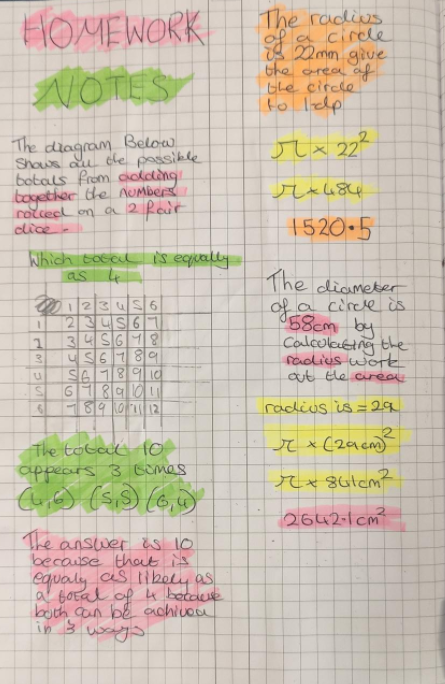 HOMEWORK
NOTES
The diagram Below
shows all the possible
totals from adding
together the numbers
rolled on a 2 fair
dice.
Which total is equally
as 4
1 2 3 4 5 6
1 2 3 4 5 6 7
2 3 4 5 6 7 8
3 4 5 6 7 8 9
4 5 6 7 8 9 10
5 6 7 8 9 10 11
6 7 8 9 10 11 12
The total 10
appears 3 times
(4,6) (5,5) (6,4)
The answer is 10
because that is
equaly as likely as
a total of 4 because
both can be achived
in 3 ways
The radius
of a circle
is 22mm give
the area of
the circle
to 1dp
π × 22²
π × 484
1520.5
The diameter
of a circle is
58cm by
calculating the
radius work
out the area
radius is = 29
π × (29cm)²
π × 841cm²
2642.1cm²